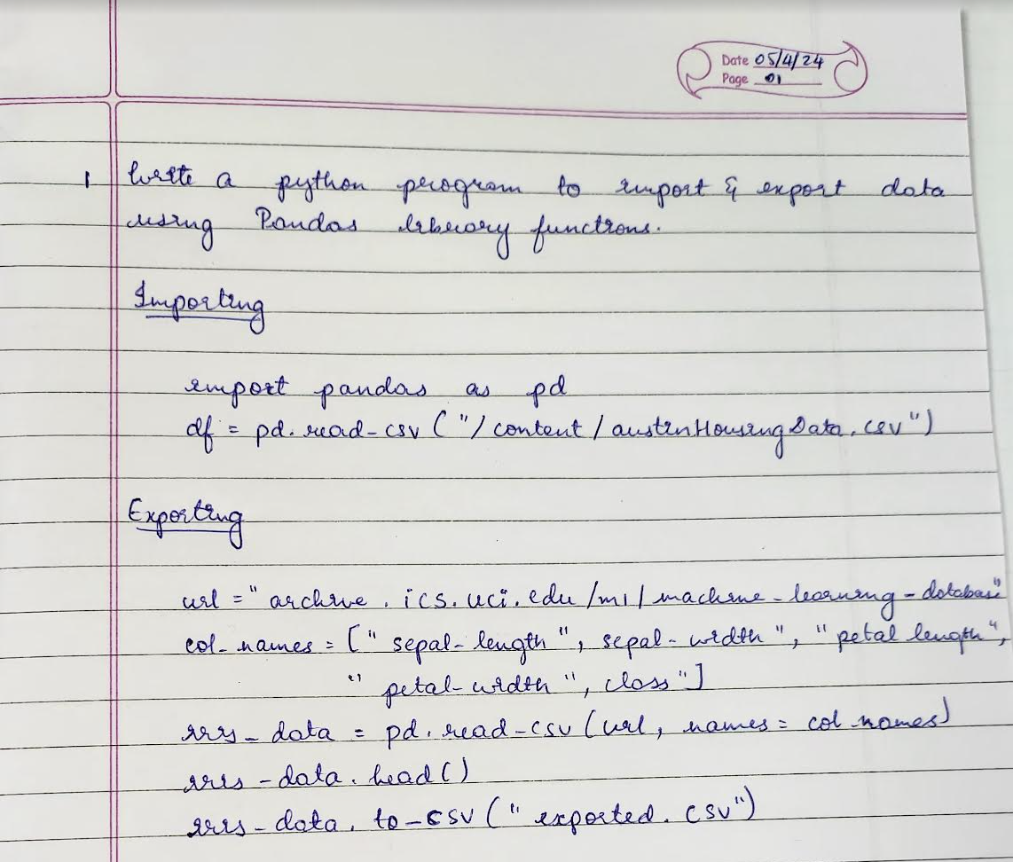 Date 05/4/24
Page 01
1 Write a python program to import & export data
using Pandas library functions.
Importing
import pandas as pd
df = pd.read-csv ("/content/austinHousingData.csv")
Exporting
url = "archive.ics.uci.edu/ml/machine-learning-databases"
col-names = ["sepal-length", sepal-width", "petal length",
"petal-width", class"]
iris-data = pd.read-csv (url, names = col-names)
iris-data.head()
iris-data.to-csv ("exported.csv")